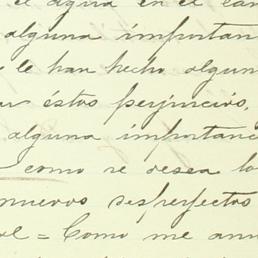 el agua en el can
alguna importan
le han hecho algun
estos perjuicios,
alguna importanc
como se desea lo
nuevos desperfectos
= Como me anu